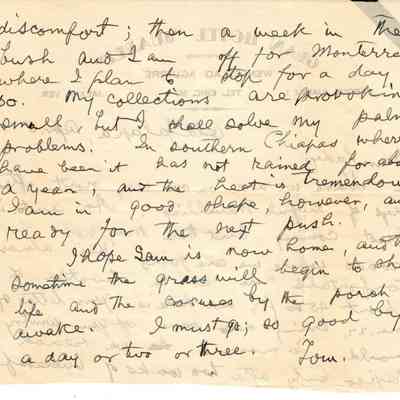 discomfort; then a week in the
bush and I am off for Monterre
where I plan to stop for a day
so. My collections are provokin
small, but I shall solve my palm
problems. In southern Chiapas where
have been it has not rained for abo
a year, and the heat is tremendou
I am in good shape, however, an
ready for the next push.
I hope Sam is now home, and th
sometime the grass will begin to sh
life and the by the porch
awake. I must go; so good by
a day or two or three. Tom.